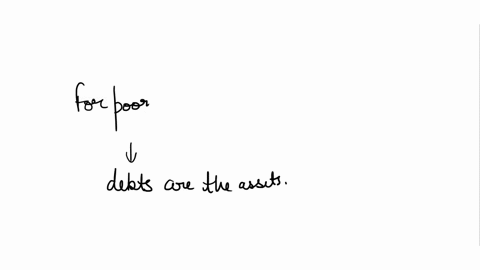 for poor
↓
debts are the assets.